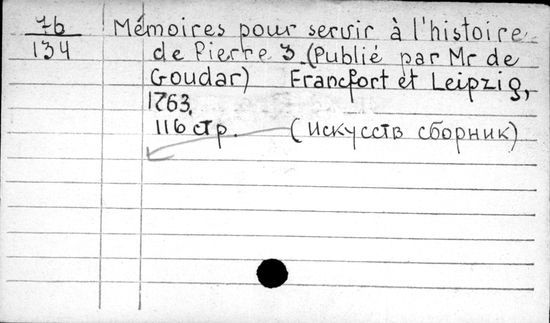 7б Mémoires pour servir à l'histoire
134 de Pierre 3. (Publié par Mr de
Goudar) Francfort et Leipzig,
1763.
116 стр. (искусств сборник)